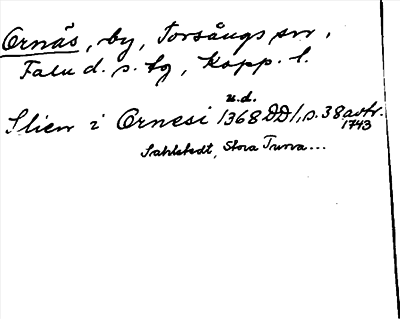 Ornäs, by, Torsångs sn,
Falu d. s. tg, Kopp. l.
u.d.
Slien i Ornesi 1368 DD 1, s. 38 avtr.
1743
Sahlstedt, Stora Tuna...